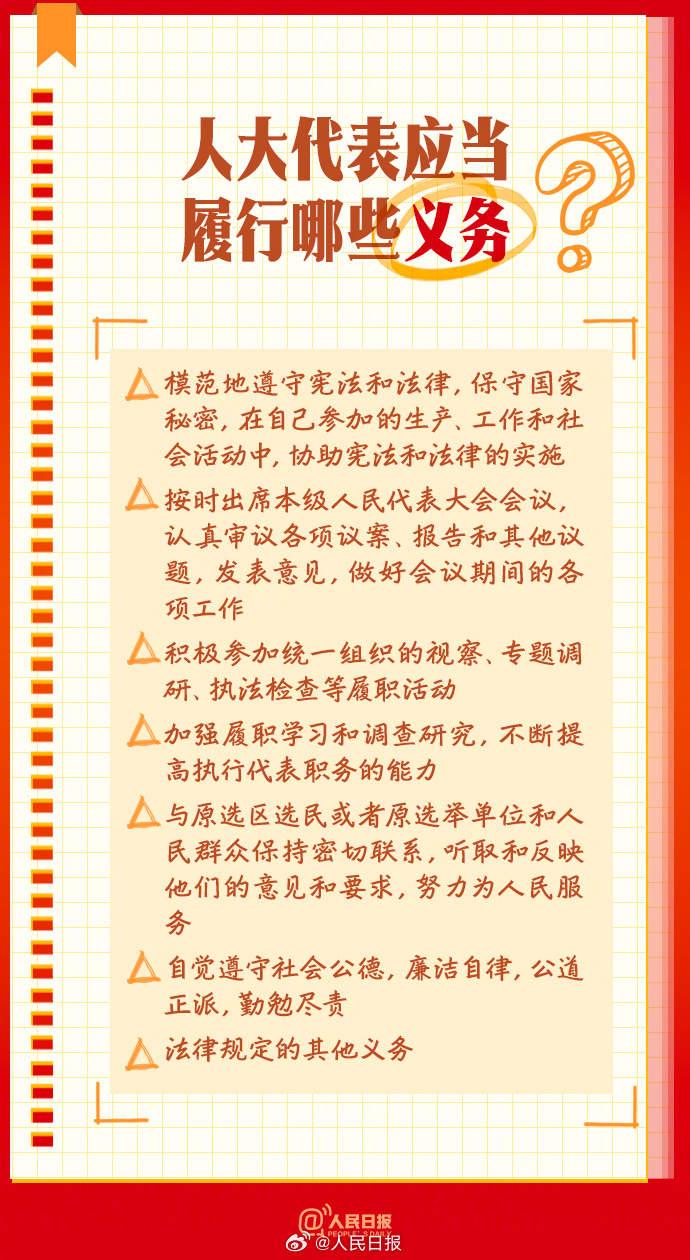 人大代表应当
履行哪些义务
模范地遵守宪法和法律,保守国家
秘密,在自己参加的生产、工作和社
会活动中,协助宪法和法律的实施
按时出席本级人民代表大会会议,
认真审议各项议案、报告和其他议
题,发表意见,做好会议期间的各
项工作
积极参加统一组织的视察、专题调
研、执法检查等履职活动
加强履职学习和调查研究,不断提
高执行代表职务的能力
与原选区选民或者原选举单位和人
民群众保持密切联系,听取和反映
他们的意见和要求,努力为人民服
务
自觉遵守社会公德,廉洁自律,公道
正派,勤勉尽责
法律规定的其他义务
@人民日报
PEOPLE'S DAILY
@人民日报